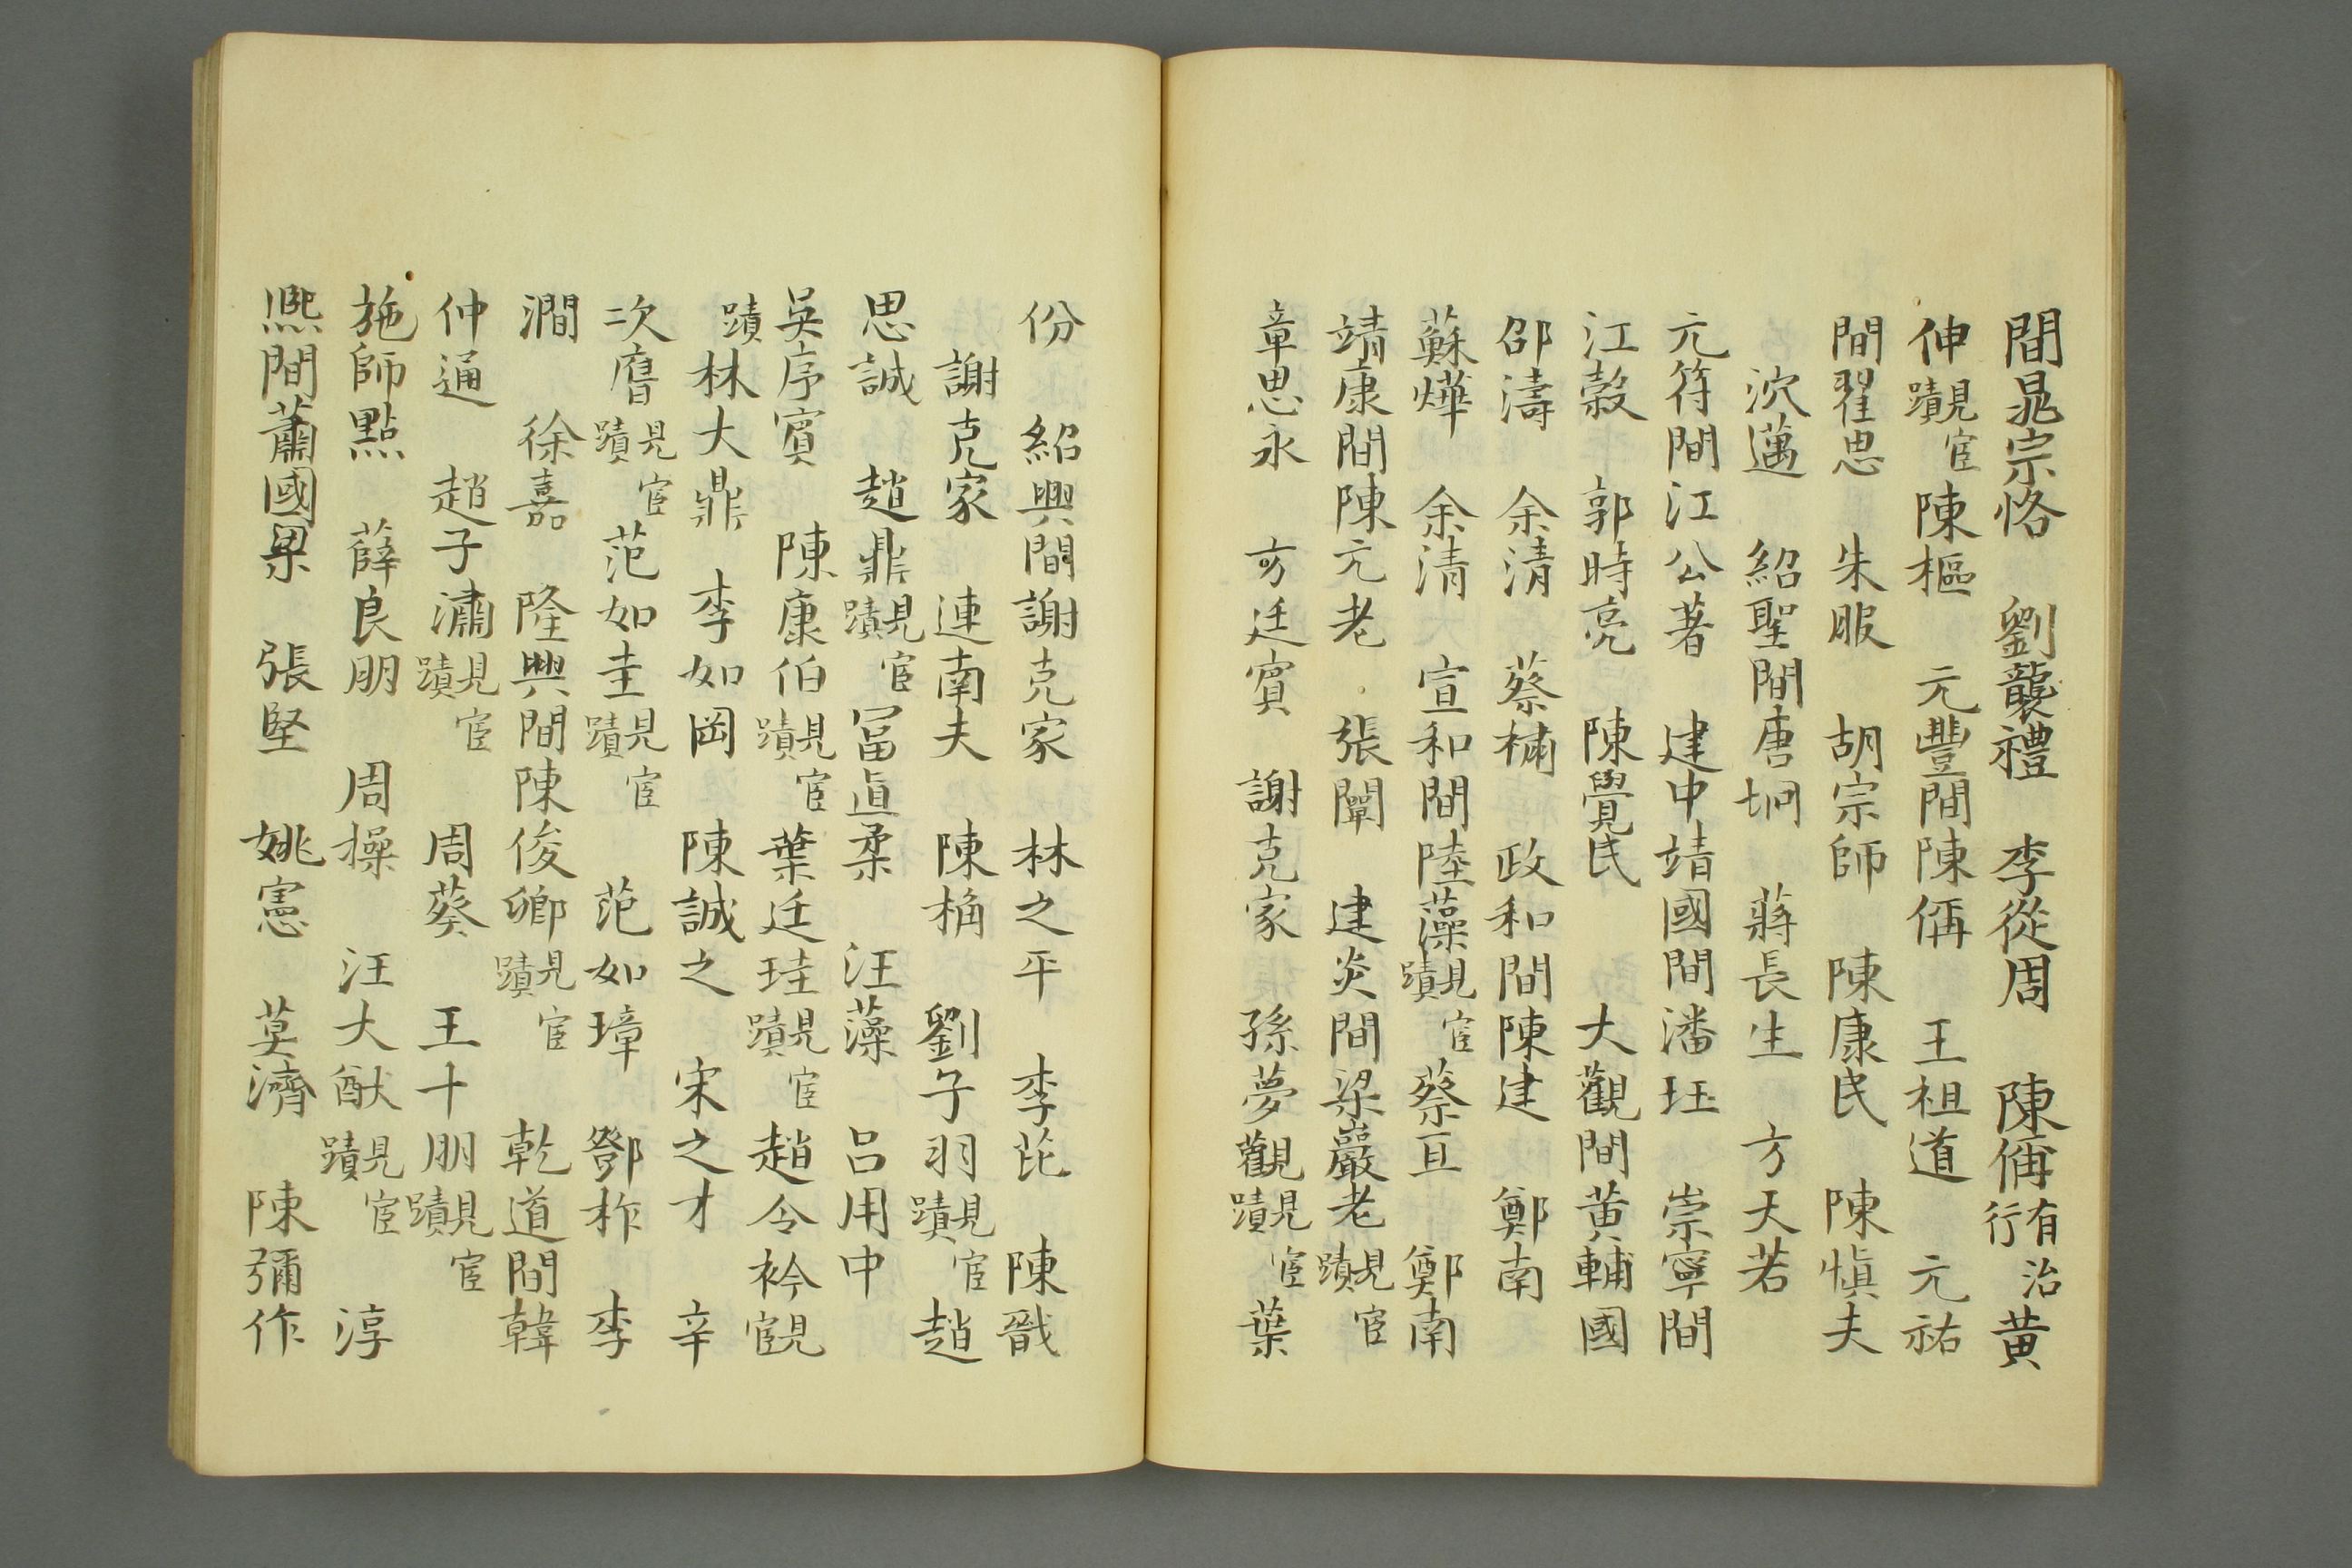 間晁宗恪 劉襲禮 李從周 陳偁有治行黃
伸見宦蹟陳樞 元豐間陳偁 王祖道 元祐
間翟思 朱服 胡宗師 陳康民 陳慎夫
沈邁 紹聖間唐坰 蔣長生 方天若
元符間江公著 建中靖國間潘珏 崇寧間
江㲄 郭時亮 陳覺民 大觀間黃輔國
邵濤 余清 蔡橚 政和間陳建 鄭南
蘇燁 余清 宣和間陸藻見宦蹟 蔡亘 鄭南
靖康間陳元老 張闡 建炎間梁巖老見宦蹟
章思永 方廷賓 謝克家 孫夢觀見宦蹟 葉
份 紹興間謝克家 林之平 李芘 陳戩
謝克家 連南夫 陳桷 劉子羽見宦蹟 趙
思誠 趙鼎見宦蹟 冨直柔 汪藻 呂用中
吳序賓 陳康伯見宦蹟 葉廷珪見宦蹟 趙令衿見宦
蹟林大鼎 李如岡 陳誠之 宋之才 辛
次膺見宦蹟 范如圭見宦蹟 范如璋 鄧柞 李
澗 徐嘉 隆興間陳俊卿見宦蹟 乾道間韓
仲通 趙子潚見宦蹟 周葵 王十朋見宦蹟
施師點 薛良朋 周操 汪大猷見宦蹟 淳
熙間蕭國梁 張堅 姚憲 莫濟 陳彌作